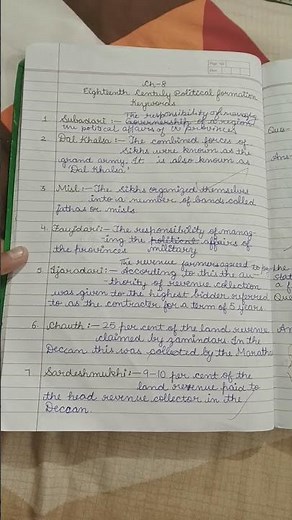 Ch-8
Eighteenth Century Political formation
Keywords
The responsibility of managing
1 Subadari :- Governorship of a region
the political affairs of the provinces
2 Dal Khalsa :- The combined forces of
Sikhs were known as the
grand army. It is also known as
"Dal Khalsa"
3 Misl :- The Sikhs organized themselves
into a number of bands called
jathas or misls
4 Faujdari :- The responsibility of manag-
ing the political affairs of
the provinces military
The revenue farmers agreed to pay the
5 Ijaradari :- According to this the au-
thority of revenue collection
was given to the highest bidder referred
to as the contractor for a term of 5 years
6 Chauth :- 25 per cent of the land revenue
claimed by zamindars In the
Deccan this was collected by the Maratha
7 Sardeshmukhi :- 9-10 per cent of the
land revenue paid to
the head revenue collector in the
Deccan
Que-
Ans-
Stat
a f
Que
An